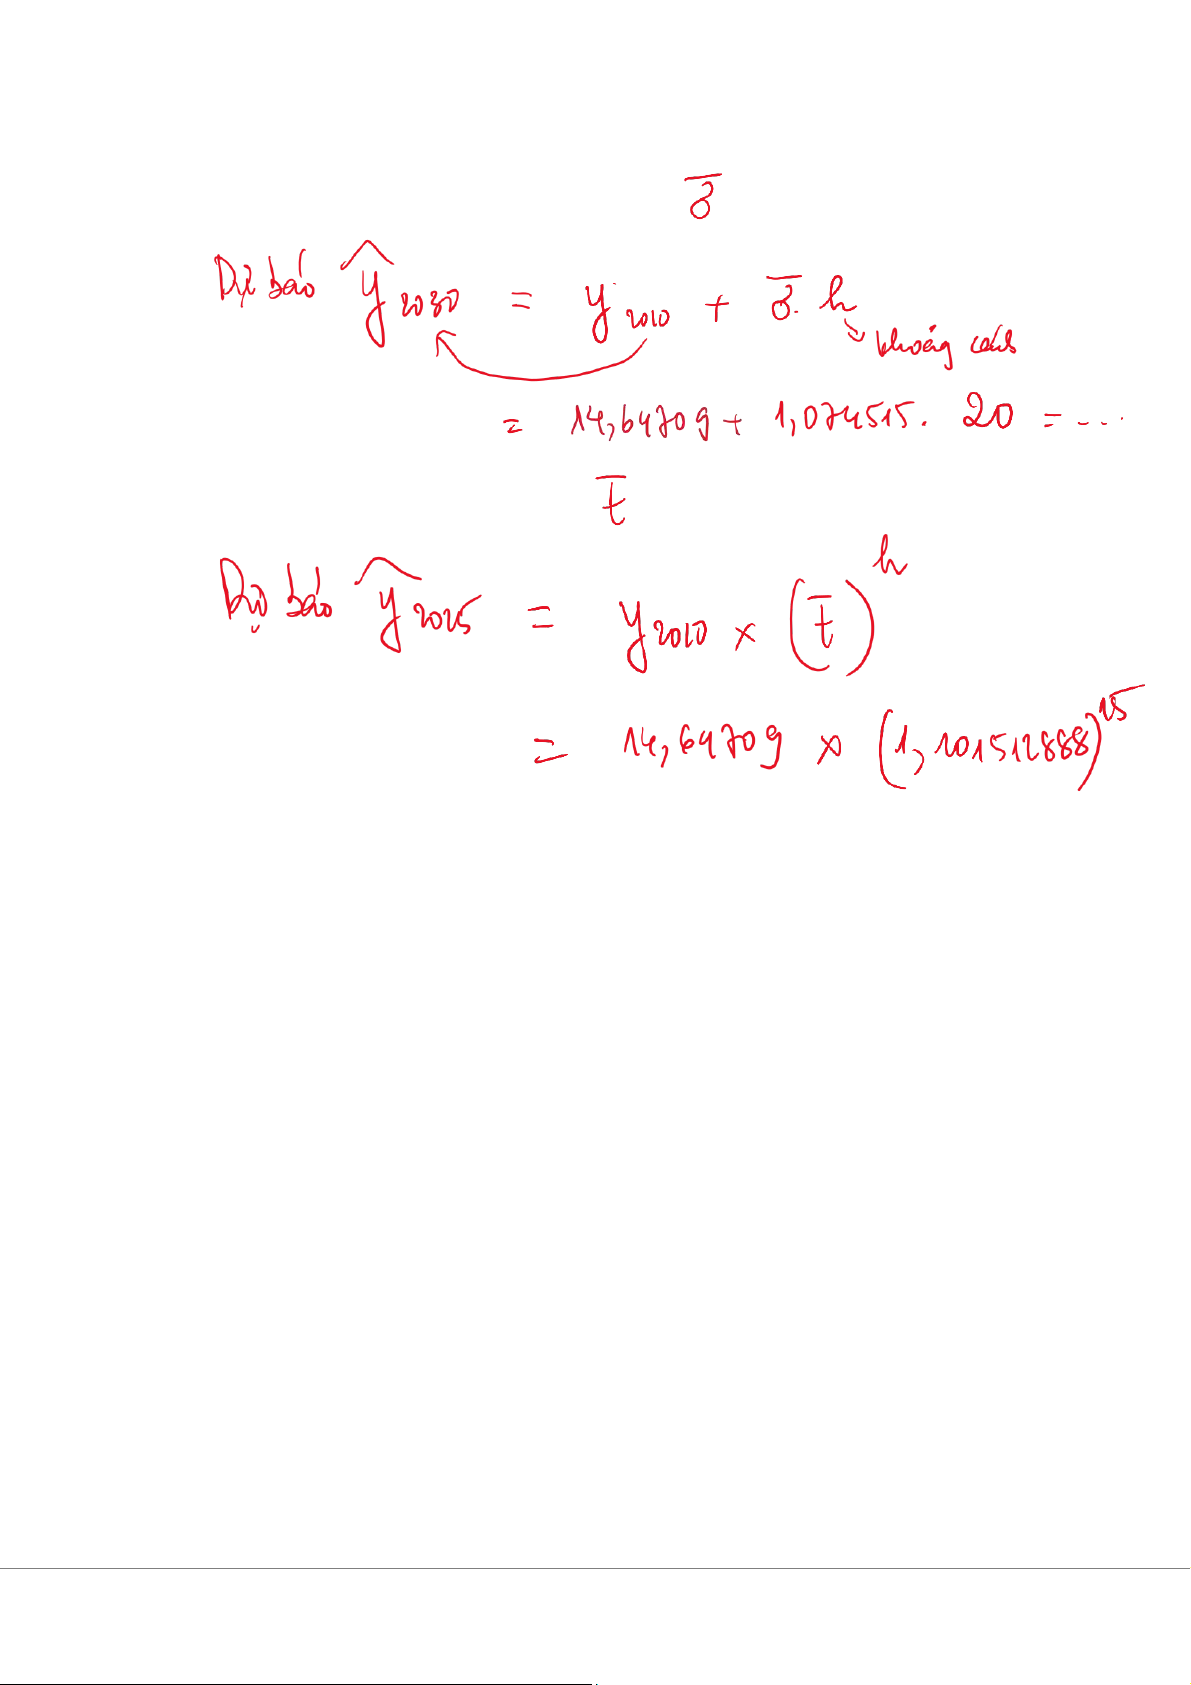 δ̅
Dự báo ŷ₂₀₃₀ = y₂₀₁₀ + δ̅. h
khoảng cách
= 14,64709 + 1,074515. 20 = ...
t̅
Dự báo ŷ₂₀₂₅ = y₂₀₁₀ × (t̅)ʰ
= 14,64709 × (1,101512888)¹⁵